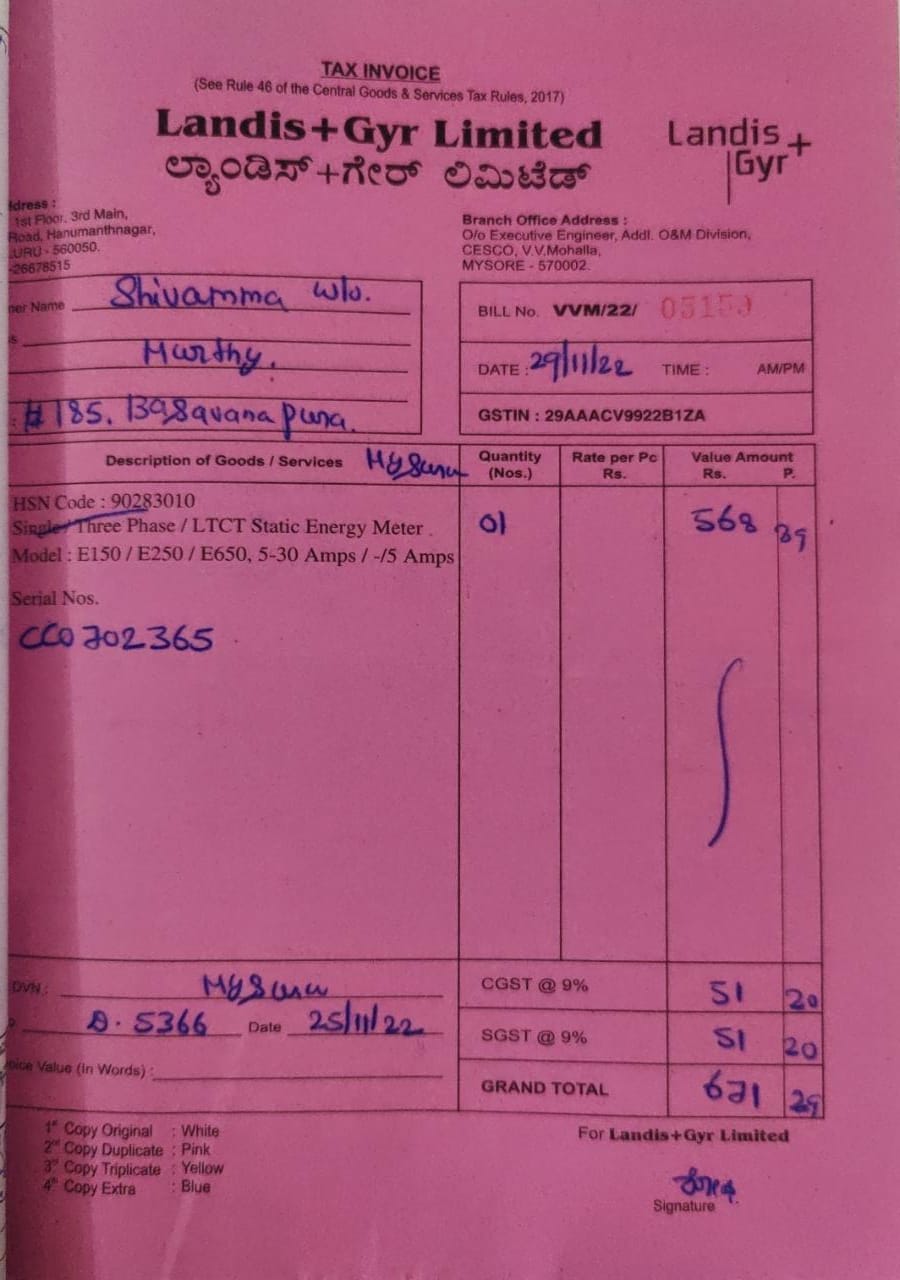 TAX INVOICE
(See Rule 46 of the Central Goods & Services Tax Rules, 2017)
Landis+Gyr Limited
ಲ್ಯಾಂಡಿಸ್+ಗೇರ್ ಲಿಮಿಟೆಡ್
Landis+
Gyr
dress :
1st Floor, 3rd Main,
Road, Hanumanthnagar,
URU - 560050.
-26678515
Branch Office Address :
O/o Executive Engineer, Addl. O&M Division,
CESCO, V.V.Mohalla,
MYSORE - 570002.
er Name Shivamma W/o.
s
Murthy.
: # 185. Basavanapura.
Mysuru
BILL No. VVM/22/ 05159
DATE : 29/11/22 TIME : AM/PM
GSTIN : 29AAACV9922B1ZA
Description of Goods / Services
Quantity
(Nos.)
Rate per Pc
Rs.
Value Amount
Rs. P.
HSN Code : 90283010
Single / Three Phase / LTCT Static Energy Meter
Model : E150 / E250 / E650, 5-30 Amps / -/5 Amps
01
568 89
Serial Nos.
CC0702365
DVN : Mysuru
D. 5366 Date 25/11/22
oice Value (in Words) :
CGST @ 9% 51 20
SGST @ 9% 51 20
GRAND TOTAL 671 29
1st Copy Original : White
2nd Copy Duplicate : Pink
3rd Copy Triplicate : Yellow
4th Copy Extra : Blue
For Landis+Gyr Limited
Signature